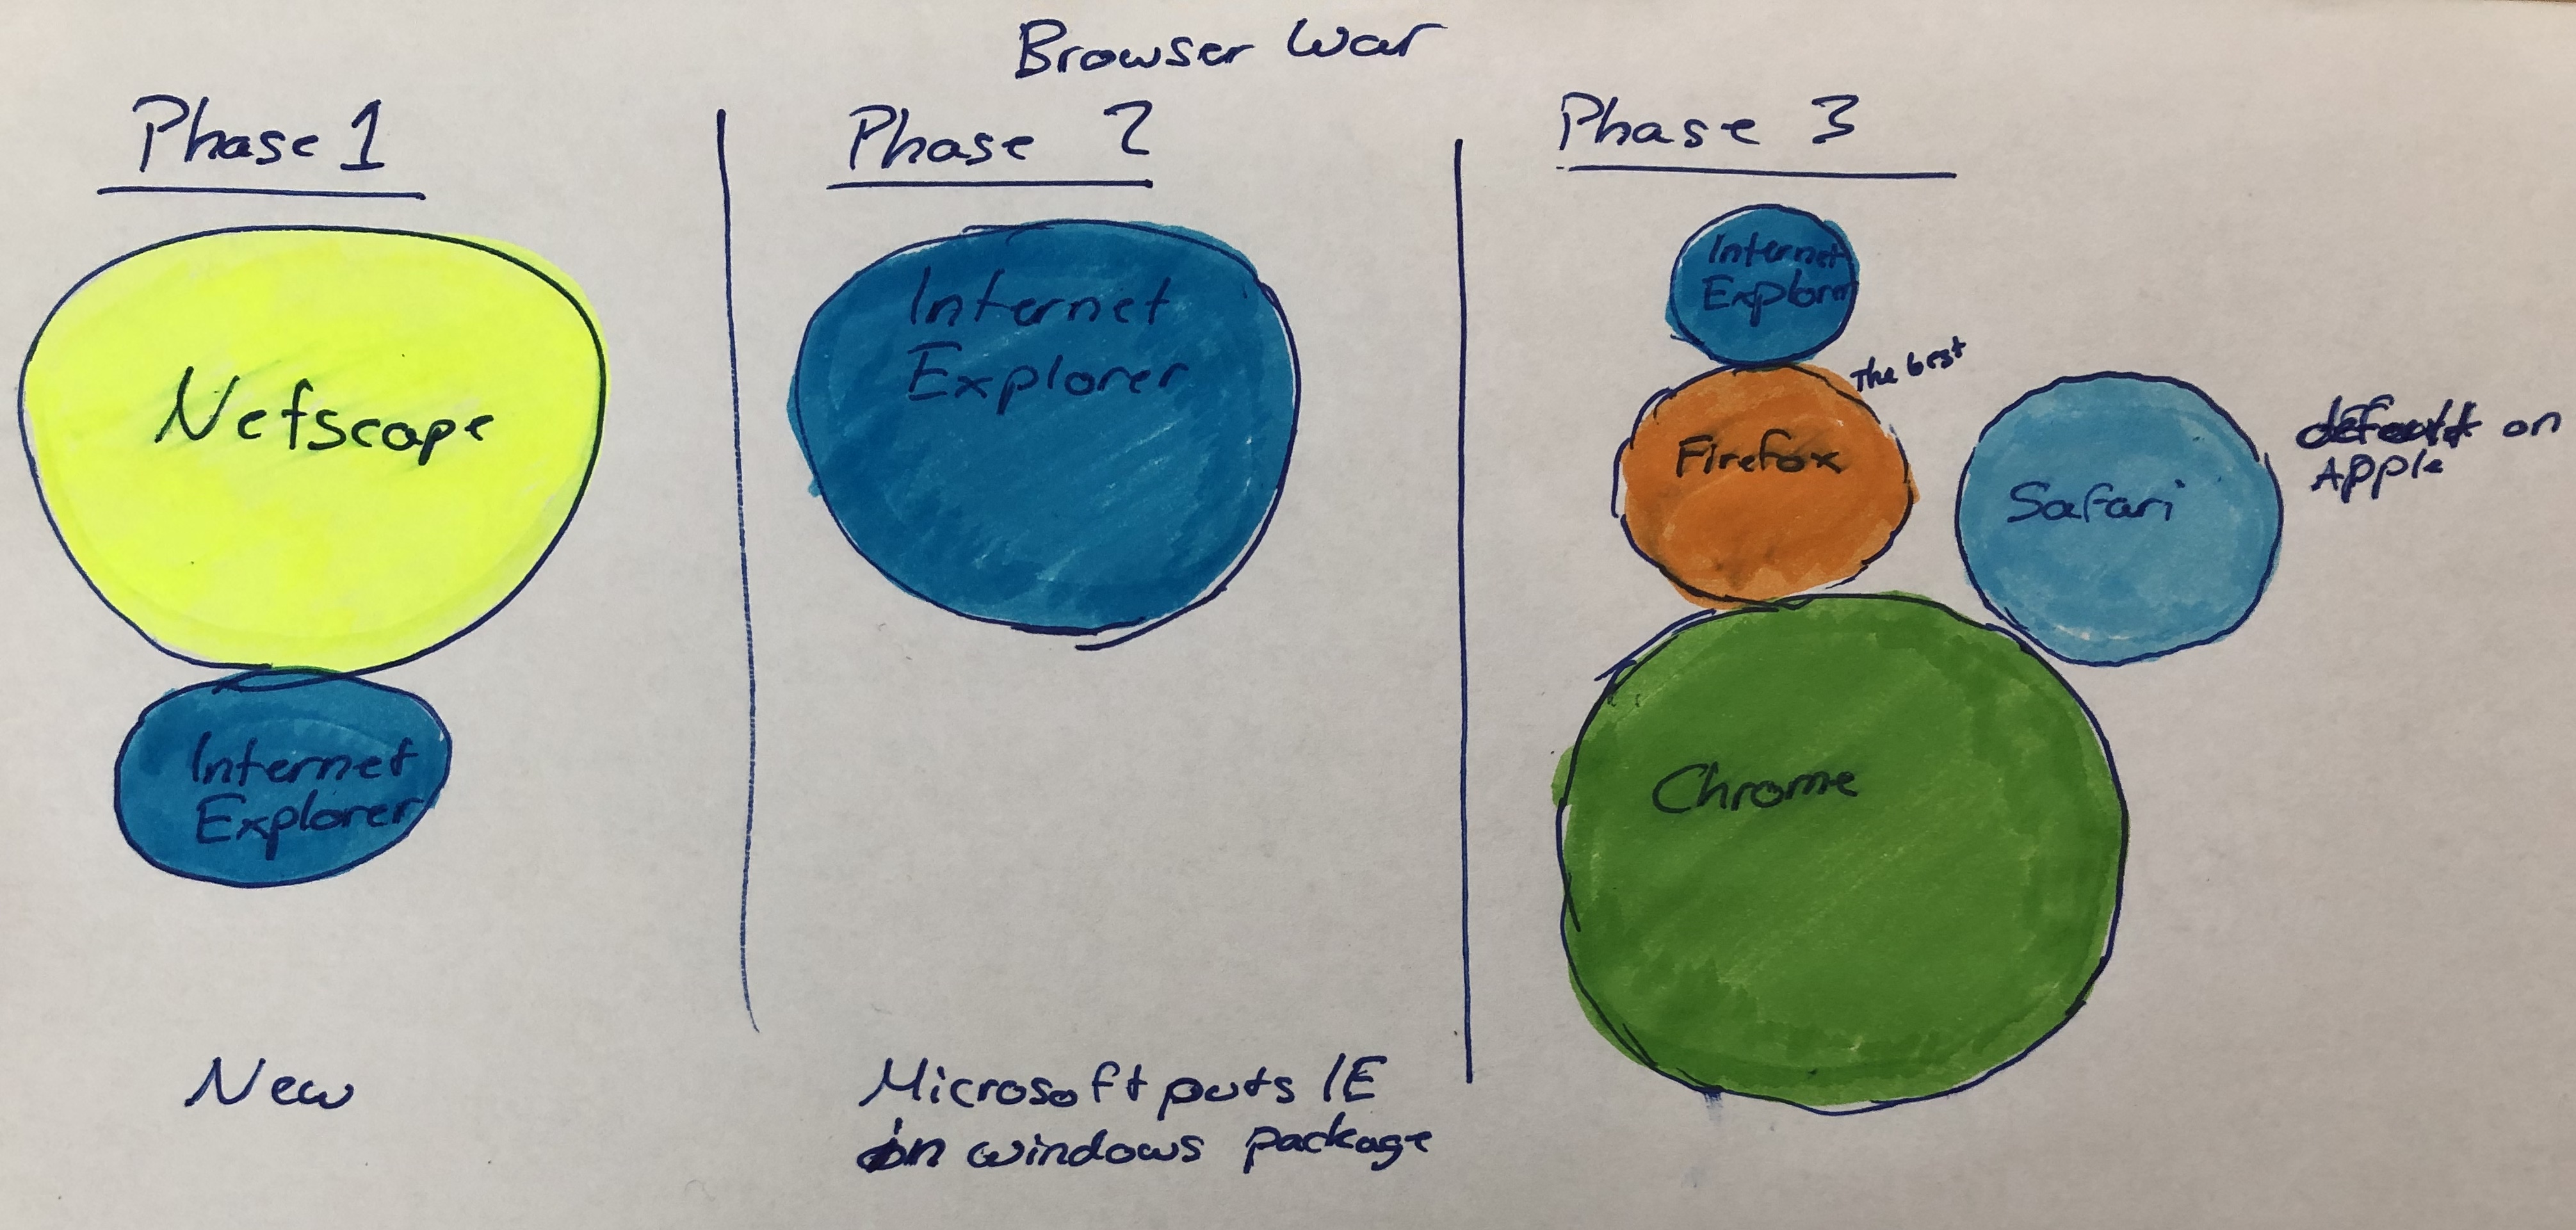 Browser War
Phase 1
Netscape
Internet
Explorer
New
Phase 2
Internet
Explorer
Microsoft puts IE
in windows package
Phase 3
Internet
Explorer
The best
Firefox
Safari
default on
Apple
Chrome